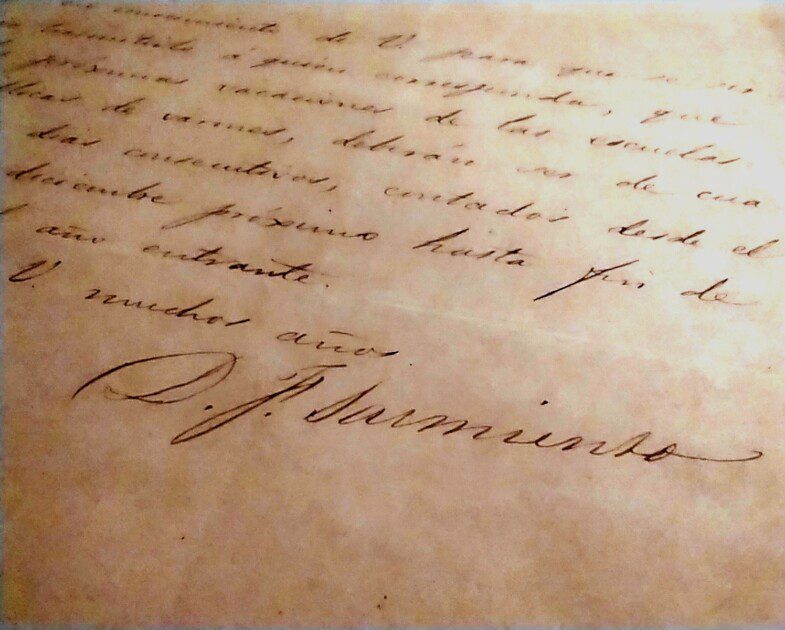 conocimiento de V. para que se sir
trasmitirlo á quien corresponda, que
próximas vacaciones de las escuelas
blicas de varones, deberán ser de cua
dias consecutivos, contados desde el
diciembre próximo hasta fin de
año entrante.
V. muchos años.
D. F. Sarmiento